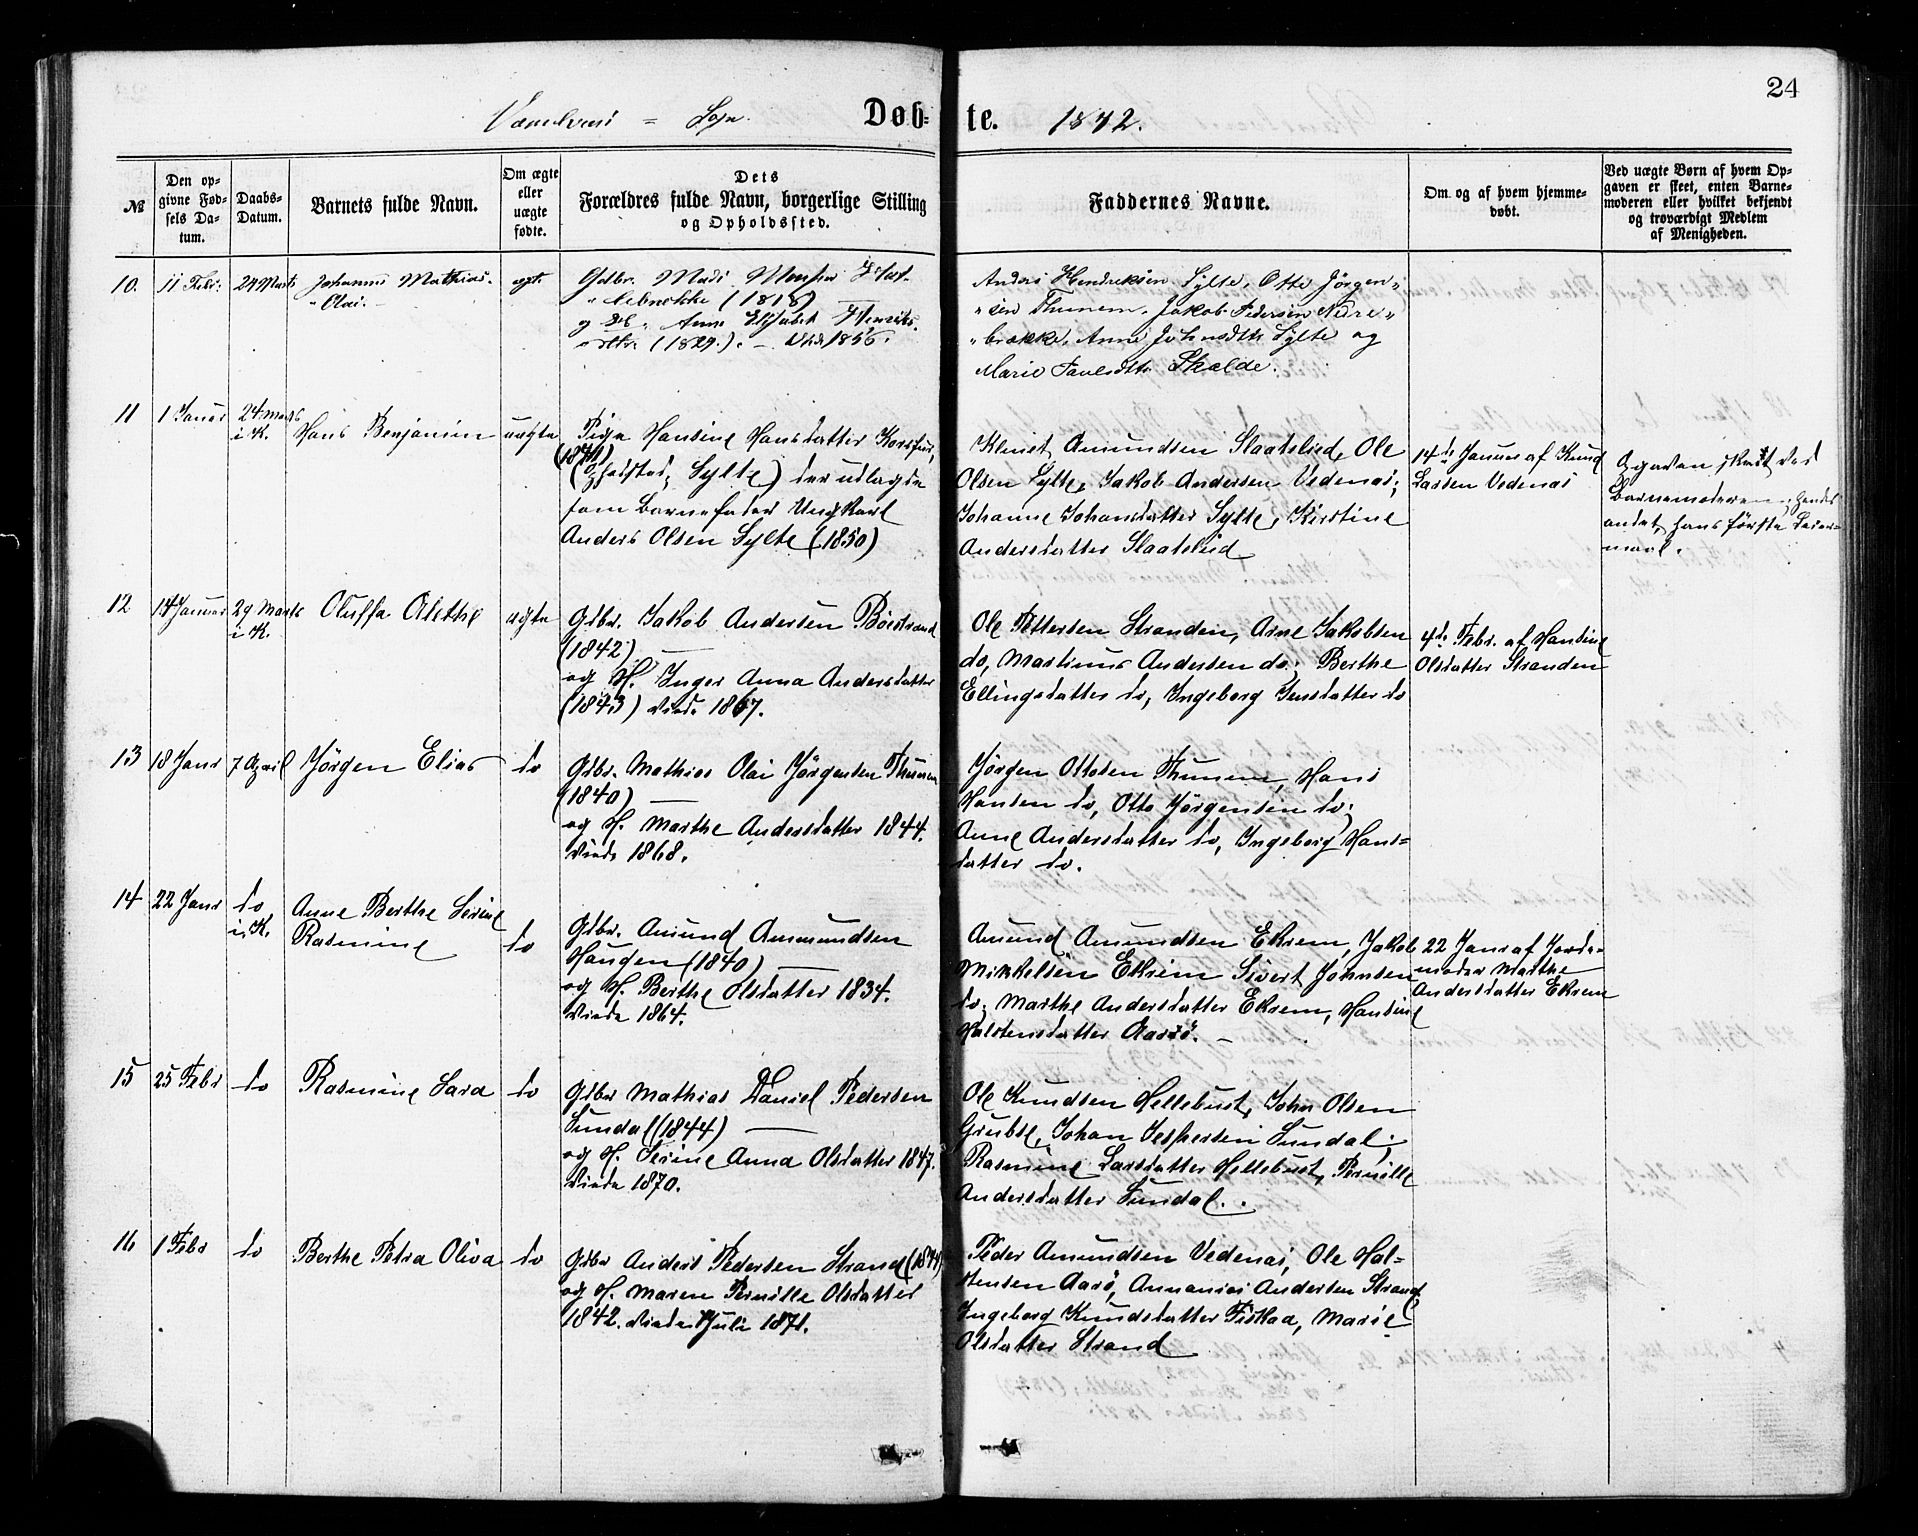 24
Sogn. Døb= te. 1872.
№
Den op=
givne Fød=
sels Da=
tum.
Daabs=
Datum.
Barnets fulde Navn.
Om ægte
eller
uægte
fødte.
Dets
Forældres fulde Navn, borgerlige Stilling
og Opholdssted.
Faddernes Navne.
Om og af hvem hjemme=
døbt.
Ved uægte Børn af hvem Op=
gaven er skeet, enten Barne=
moderen eller hvilket bekjendt
og troværdigt Medlem
af Menigheden.
10.
11 Febr.
24 Marts
Johannes Mathias
Olai.
ægte
Gdbr. Mads
(1818)
og Anne Elisabeth Henriks=
(1829). 1856.
Anders Hendriksen Sylte, Otto Jörgen=
sen Thunem, Jakob Pedersen Nedre=
brække, Anne Johnsdtr Sylte og
Marie Paulsdtr Skalde.
11
1 Januar
24 Marts
i K.
Hans Benjamin
uægte
Pige Hansine Hansdatter
Sylte) der udlagde
som Barnefader Ungkarl
Anders Olsen Sylte (1850)
Klinet Amundsen Slaatelied, Ole
Olsen Sylte, Jakob Andersen Vedenæs;
Johanne Johansdatter Sylte, Kirstine
Andersdatter Slaatelied
14de Januar af Knud
Larsen Vedenæs
Opgaven skeet ved
Barnemoderen, hendes
andet, hans förste Leier=
maal.
12
14 Januar
29 Marts
i K.
Oluffa Alethe
ægte
Gdbr. Jakob Andersen
(1842)
og H. Inger Anna Andersdatter
(1843) Viede 1867.
Ole Pettersen Stranden, Arne Jakobsen
do, Martinus Andersen do; Berthe
Ellingsdatter do, Ingeborg Jensdatter do
4de Febr. af Hansine
Olsdatter Stranden
13
18 Janr
7 April
Jörgen Elias
do
Gdbr. Mathias Olai Jörgensen Thunem
(1840)
og H. Marthe Andersdatter 1844.
Viede 1868.
Jörgen Ottosen Thunem, Hans
Hansen do, Otto Jörgensen do;
Anne Andersdatter do, Ingeborg Hans=
datter do.
14
22 Janr
do
i K.
Anne Berthe Serine
Rasmine
do
Gdbr. Amund Ammundsen
Haugen (1840)
og H. Berthe Olsdatter 1834.
Viede 1864.
Amund Amundsen Ekrem, Jakob
Mikkelsen Ekrem Sivert Johnsen
do; Marthe Andersdatter Ekrem, Hansine
Halstensdatter Aarsö.
22 Janr af Jorde=
moder Marthe
Andersdatter Ekrem
15
25 Febr
do
Rasmine Sara
do
Gdbr Mathias Daniel Pedersen
Sundal (1844)
og H. Serine Anna Olsdatter 1847.
Viede 1870.
Ole Knudsen Hellebust, John Olsen
Grubse, Johan Jespersen Sundal;
Rasmine Larsdatter Hellebust, Pernille
Andersdatter Sundal.
16
1 Febr
do
Berthe Petra Oliva
do
Gdbr Anders Pedersen Strand
og H. Maren Pernille Olsdatter
1842. Viede Juli 1871.
Peder Amundsen Vedenæs, Ole Hal=
stensen Aarö, Annanias Andersen Strand
Ingeborg Knudsdatter Fiskaa, Marie
Olsdatter Strand